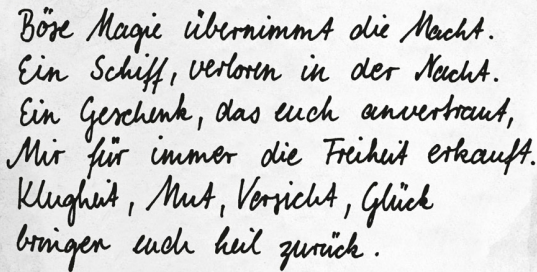 Böse Magie übernimmt die Macht.
Ein Schiff, verloren in der Nacht.
Ein Geschenk, das euch anvertraut,
Mir für immer die Freiheit erkauft.
Klugheit, Mut, Vorsicht, Glück
bringen euch heil zurück.